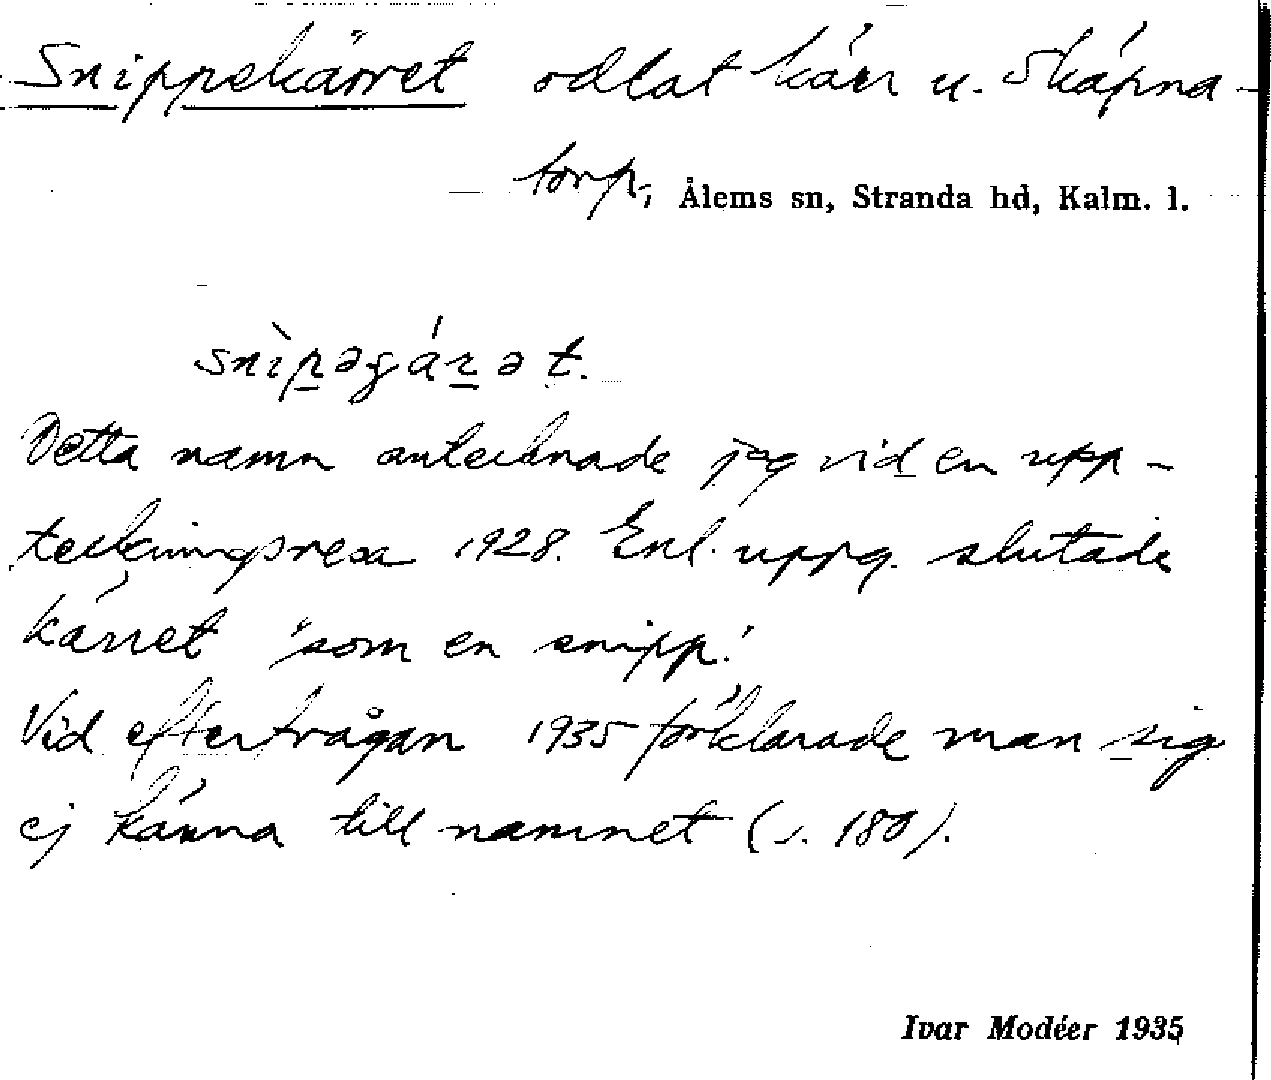 Snippekärret odlat kärr u. Skäpna-
torp, Ålems sn, Stranda hd, Kalm. l.
snìp̲əgár̲ət.
Detta namn antecknade jag vid en upp-
teckningsresa 1928. Enl. uppg. slutade
kärret "som en snipp".
Vid efterfrågan 1935 förklarade man sig
ej känna till namnet (s. 180).
Ivar Modéer 1935